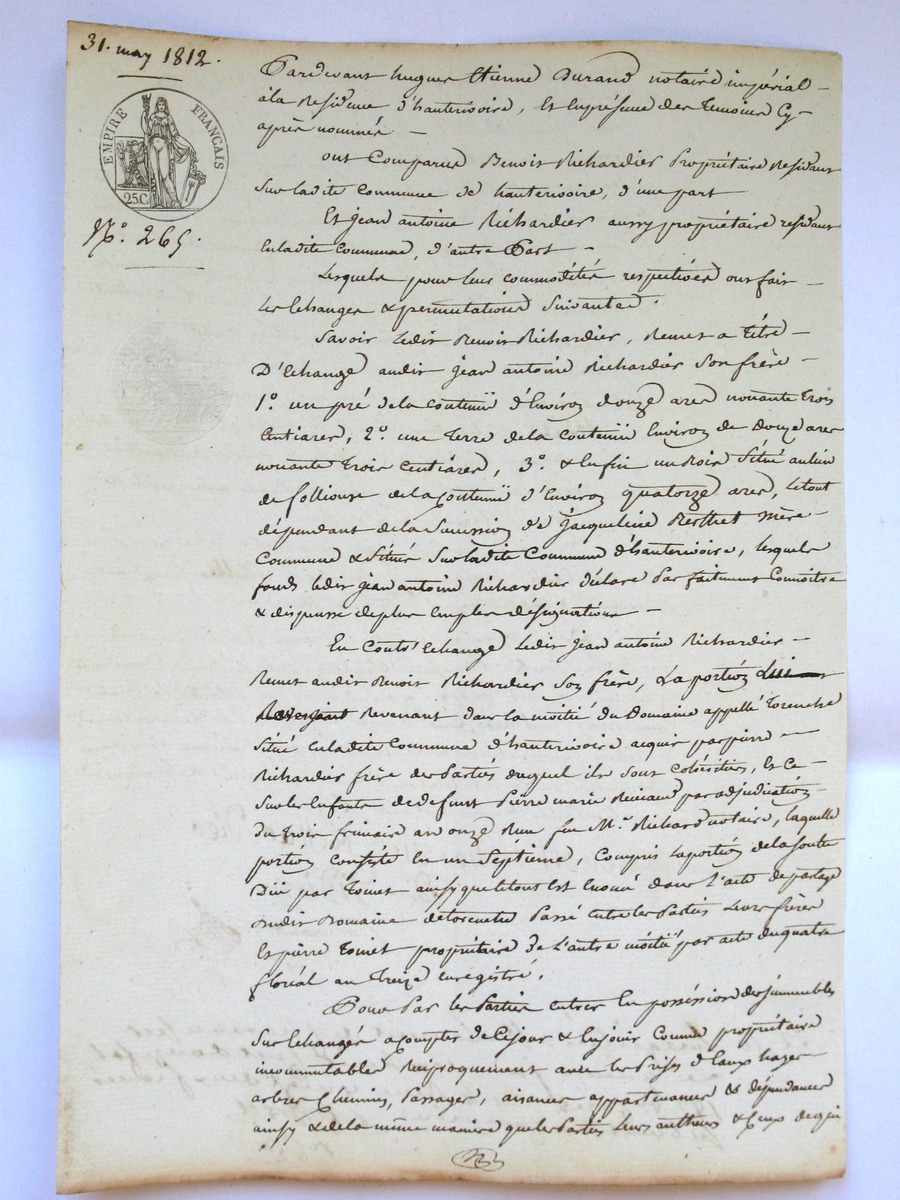 31. may 1812.
EMPIRE FRANÇAIS
25.C.
N.º 265.
Pardevant hugues Etienne Durand notaire impérial
à la Residence d'hauterivoire, Et En présence des temoins Cy-
après nommés
ont Comparus Benoit Richardier Propriétaire Residant
Sur ladite Commune de hauterivoire, d'une part
Et jean antoine Richardier aussy propriétaire residant
En ladite Commune, d'autre Part
Lesquels pour leur commodités respectives ont fait
les Echanges & permutations Suivantes.
Savoir Ledit Benoit Richardier, Remet a Titre
D'Echange audit jean antoine Richardier Son frère
1º un pré de la Contenüe d'Environ douze ares nonante trois
Centiares, 2º. une Terre de la Contenüe Environ de Douze ares
nonante trois Centiares, 3º. & Enfin un Bois Situé au lieu
de follieuse de la Contenüe d'Environ quatorze ares, le tout
dépendant de la Succession de Jacqueline Berthet mère
Commune & Situés Sur ladite Commune d'hauterivoire, lesquels
fonds ledit jean antoine Richardier déclare Parfaitement Connoitre
& dispense de plus amples désignations
En Contr'Echange Ledit jean antoine Richardier
Remet audit Benoit Richardier Son frère, La portion Lui
Revenant Revenant dans la moitié du Domaine appellé
Situé En ladite Commune d'hauterivoire acquis par pierre
Richardier frère des Parties duquel ils Sont Cohéritiers, Et Ce
Sur les Enfants de defunt Pierre marie par adjudication
du trois frimaire an onze Reçue feu M.e Richard notaire, laquelle
portion Consiste En un Septième, Compris la portion de la Soute
Düe par Toinet ainsy que le tout Est Enoncé dans l'acte de partage
dudit Domaine de Passé Entre les Parties Leurs frères
Et pierre Toinet propriétaire de L'autre moitié par acte du quatre
floréal an Treize enregistré.
Pour Par les Parties entrer En possession des immeubles
Sur Echangés a Compter de Cejour & En jouir Comme propriétaire
incommutables Réciproquement avec les Prises d'Eaux hayes
arbres Chemins, Passages, aisances appartenances & dépendances
ainsy & de la même maniere que les Parties Leurs autheurs & Ceux de qui